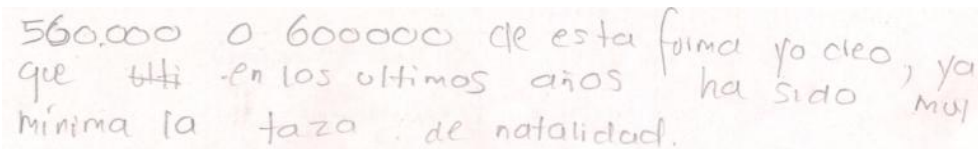 560.000 o 600000 de esta forma yo creo, ya
que en los ultimos años ha sido muy
mínima la taza de natalidad.